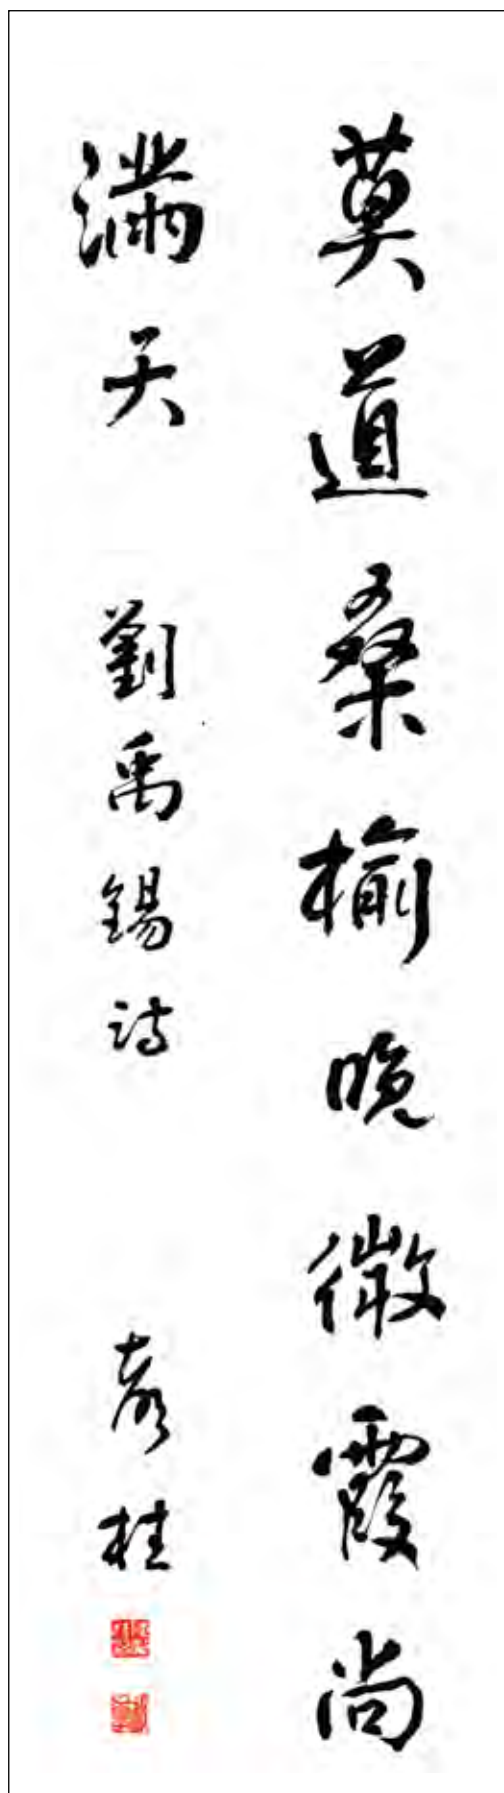 莫道桑榆晚微霞尚
滿天 劉禹錫詩 桂